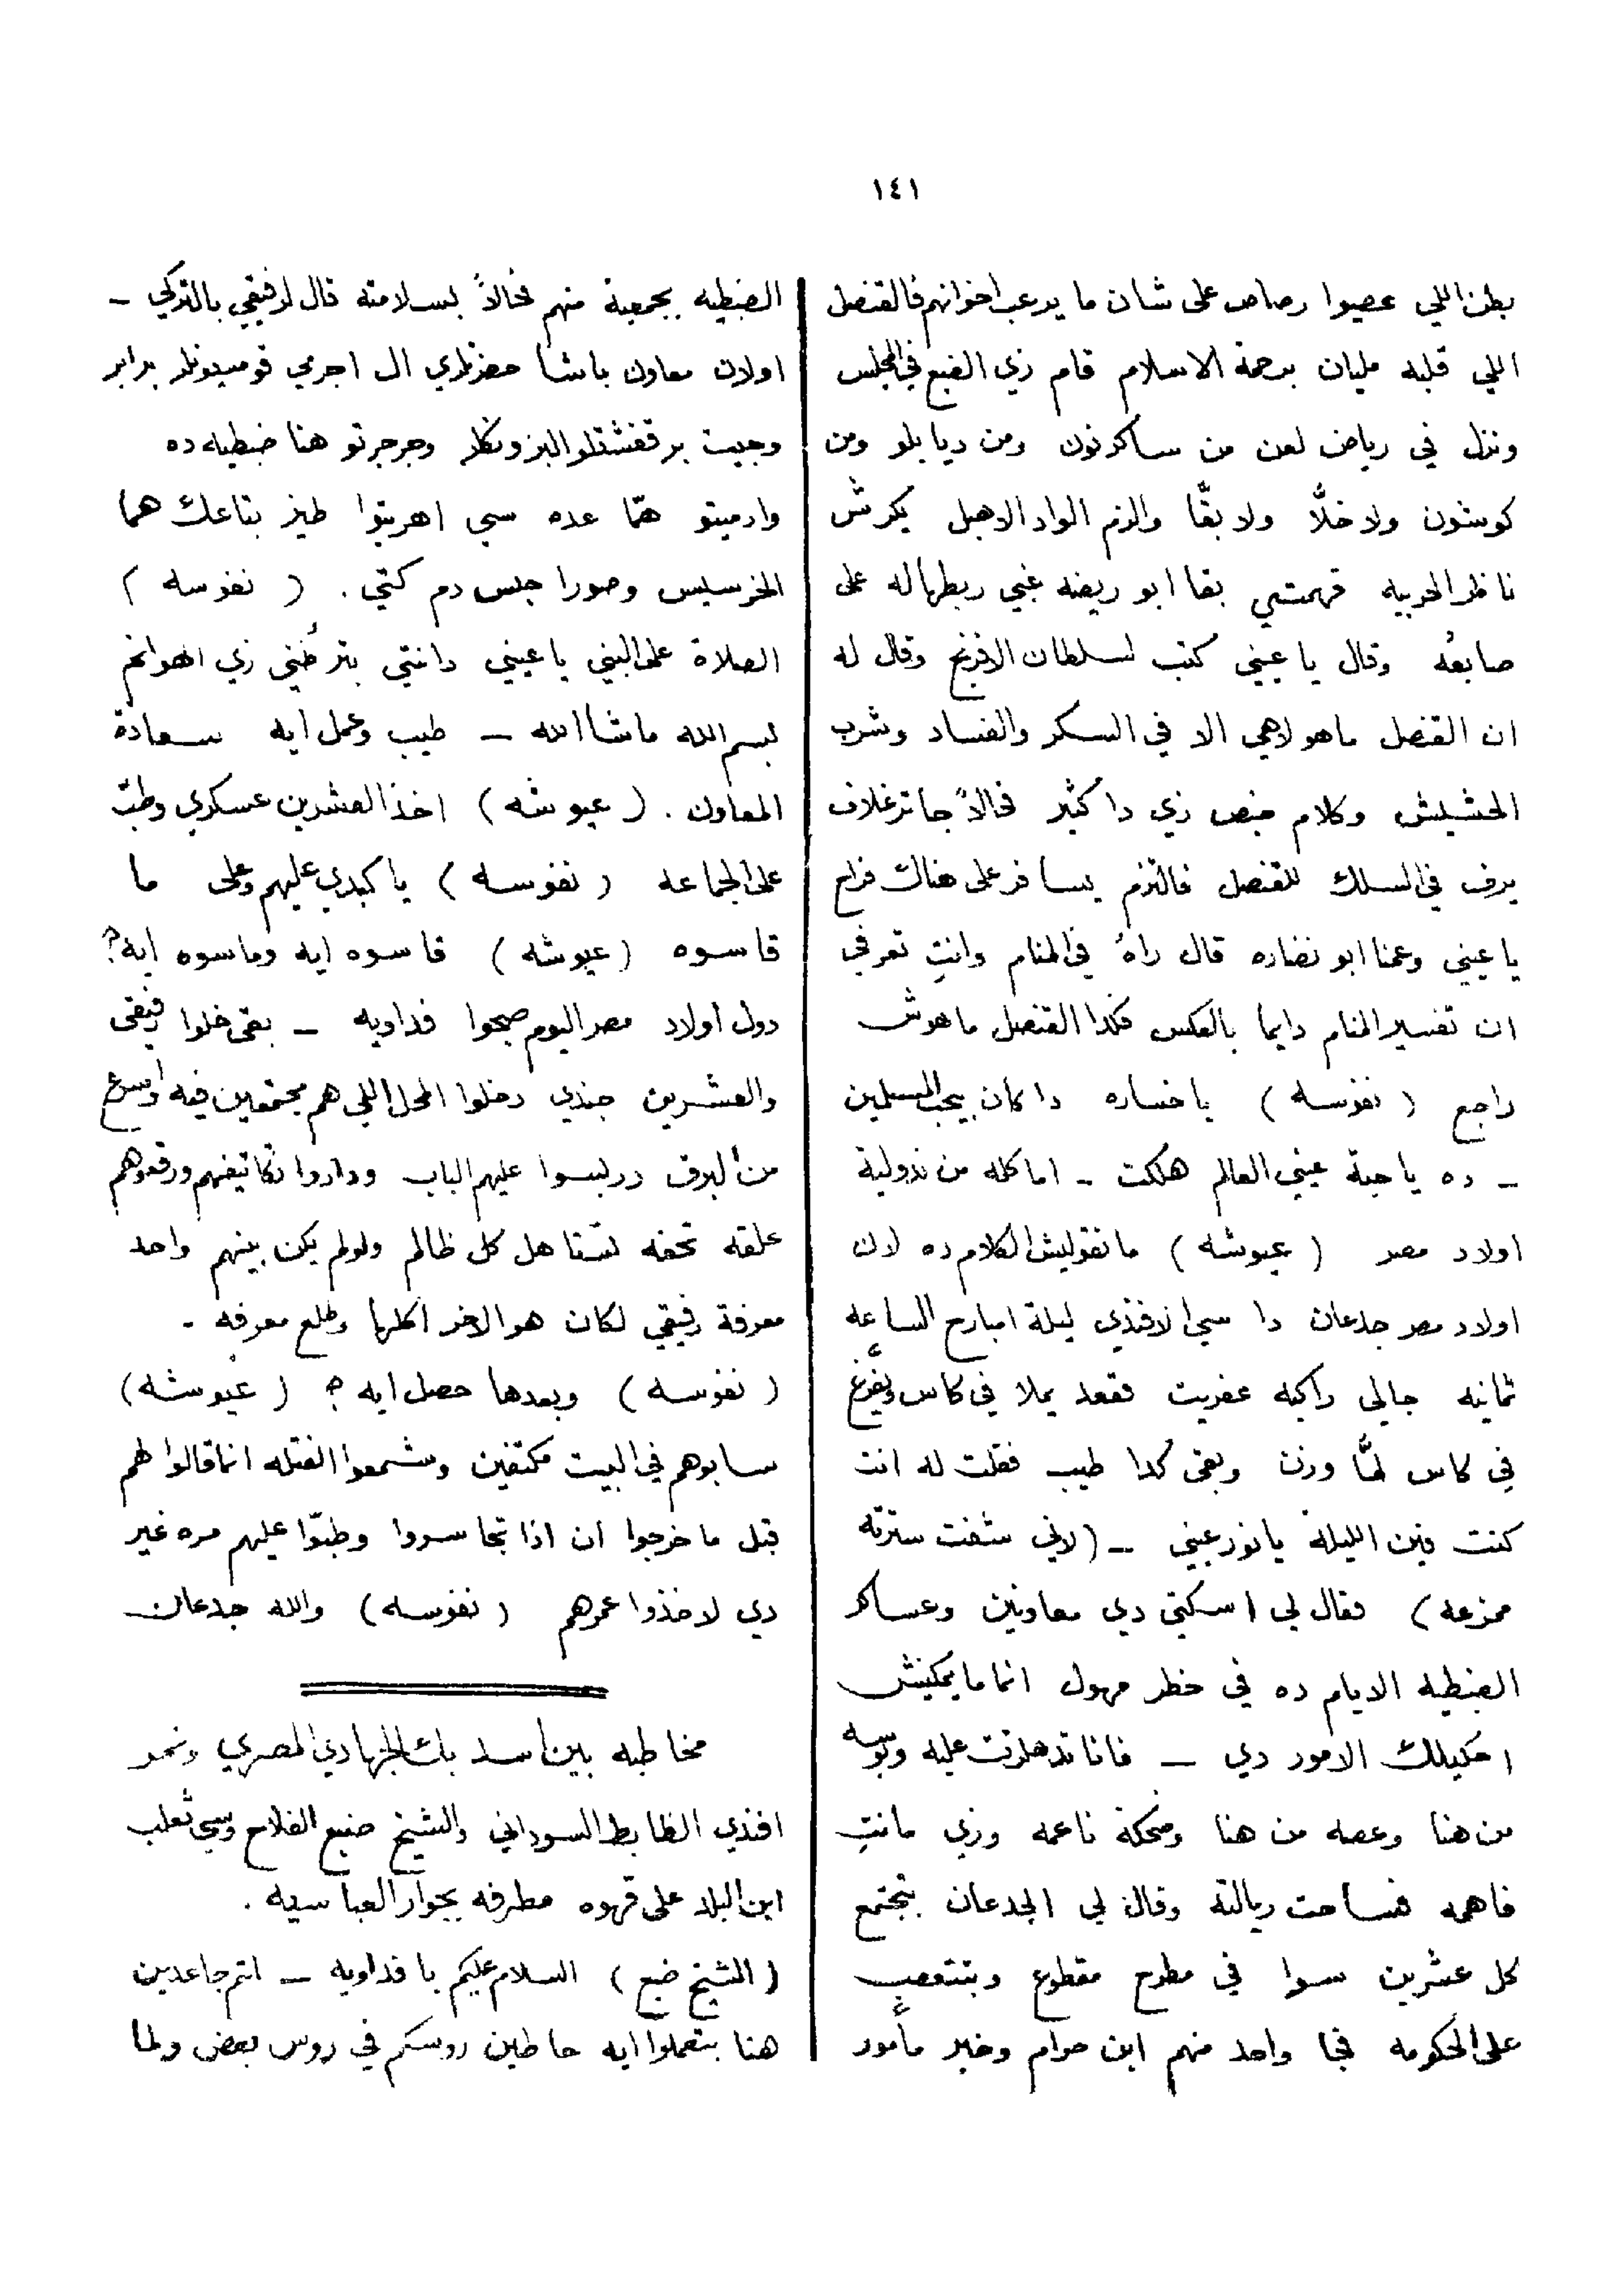 ١٤١
بطن اللي عصيوا رصاص على شان ما يرعب اخوانهم فالقنصل
اللي قلبه مليان برحمة الاسلام قام زي الضبع في المجلس
ونزل في رياض لعن من ساكرنون ومن ديابلو ومن
كوشون ولا خلّا ولا بقّا والزم الواد الاهبل يكرش
ناظر الحربيه فهمتي بقا ابو ريضه غبي ربطها له على
صابعه وقال يا عيني كتب لسلطان الافرنج وقال له
ان القنصل ماهو لاهي الا في السكر والفساد وشرب
الحشيش وكلام خبص زي دا كثير فحالاً جا تزغلاف
برف في السلك للقنصل فالتزم يسافر على هناك فراح
يا عيني وعمنا ابو نضاره قال راهُ في المنام وانتِ تعرفي
ان تفسير المنام دايما بالعكس فكدا القنصل ماهوش
راجع ( نفوسه ) يا خساره دا كان بيحب المسلمين
ــ ده يا حبة عيني العالم هلكت ــ اما كله من ندولية
اولاد مصر ( عيوشه ) ما تقوليش الكلام ده لان
اولاد مصر جدعان دا سي الافندي ليلة امبارح الساعه
ثمانيه جالي راكبه عفريت فقعد يملا في كاس ويفرّغ
في كاس لمّا وزن وبقى كدا طيب فقلت له انت
كنت فين الليلة يا نور عيني ــ ( لاني شفت سترته
ممزعه ) فقال لي اسكتي دي معاونين وعساكر
الضبطيه الايام ده في خطر مهول انما ما يمكنيش
احكيلك الامور دي ــ فانا تدهلزت عليه وبوسه
من هنا وعصه من هنا وضحكة ناعمه وزي مانتِ
فاهمه فساحت ريالته وقال لي الجدعان بتجتمع
كل عشرين سوا في مطرح مقطوع وبتتعصب
على الحكومه فجا واحد منهم ابن حرام وخبر مأمور
الضبطيه بجمعية منهم فحالاً بسلامته قال لرفيقي بالتركي ــ
اولان معاون باشا حضرتلري ال اجرمي قوميدونلر برابر
وجيت بر قفشتلو البزونكلر وجرجرتو هنا ضبطيه ده
وارميتو همّا عده سي اهريتوا طيز بتاعك هما
الخرسيس وصورا جبس دم كتي . ( نفوسه )
الصلاة على النبي يا عيني دانتي بترطني زي الهوانم
بسم الله ماشاالله ــ طيب وعمل ايه سعادة
المعاون . ( عيوشه ) اخذ العشرين عسكري وطبّ
على الجماعه ( نفوسه ) يا كبدي عليهم وعلى ما
قاسوه ( عيوشه ) قاسوه ايه وماسوه ايه؟
دول اولاد مصر اليوم صبحوا فداويه ــ بقى خلوا رفيقى
والعشرين جندي دخلوا المحل اللي هم مجتمعين فيه واسرع
من البرق دربسوا عليهم الباب وداروا تكاتيفهم ورقعوهم
علقه تحفه تستاهل كل ظالم ولو لم يكن بينهم واحد
معرفة رفيقي لكان هو الاخر اكلها وطلع معرفه ــ
( نفوسه ) وبعدها حصل ايه ؟ ( عيوشه )
سابوهم في البيت مكتفين وشمعوا الفتله انما قالوا لهم
قبل ما خرجوا ان اذا تجاسروا وطبّوا عليهم مره غير
دي لاخذوا عمرهم ( نفوسه ) والله جدعان
مخاطبه بين اسد بك الجهادي المصري ونمر
افندي الظابط السوداني والشيخ ضبع الفلاح وسي ثعلب
ابن البلد على قهوه مطرفه بجوار العباسيه .
( الشيخ ضبع ) السلام عليكم يا فداويه ــ انتم جاعدين
هنا بتعملوا ايه حاطين روسكم في روس بعض ولما